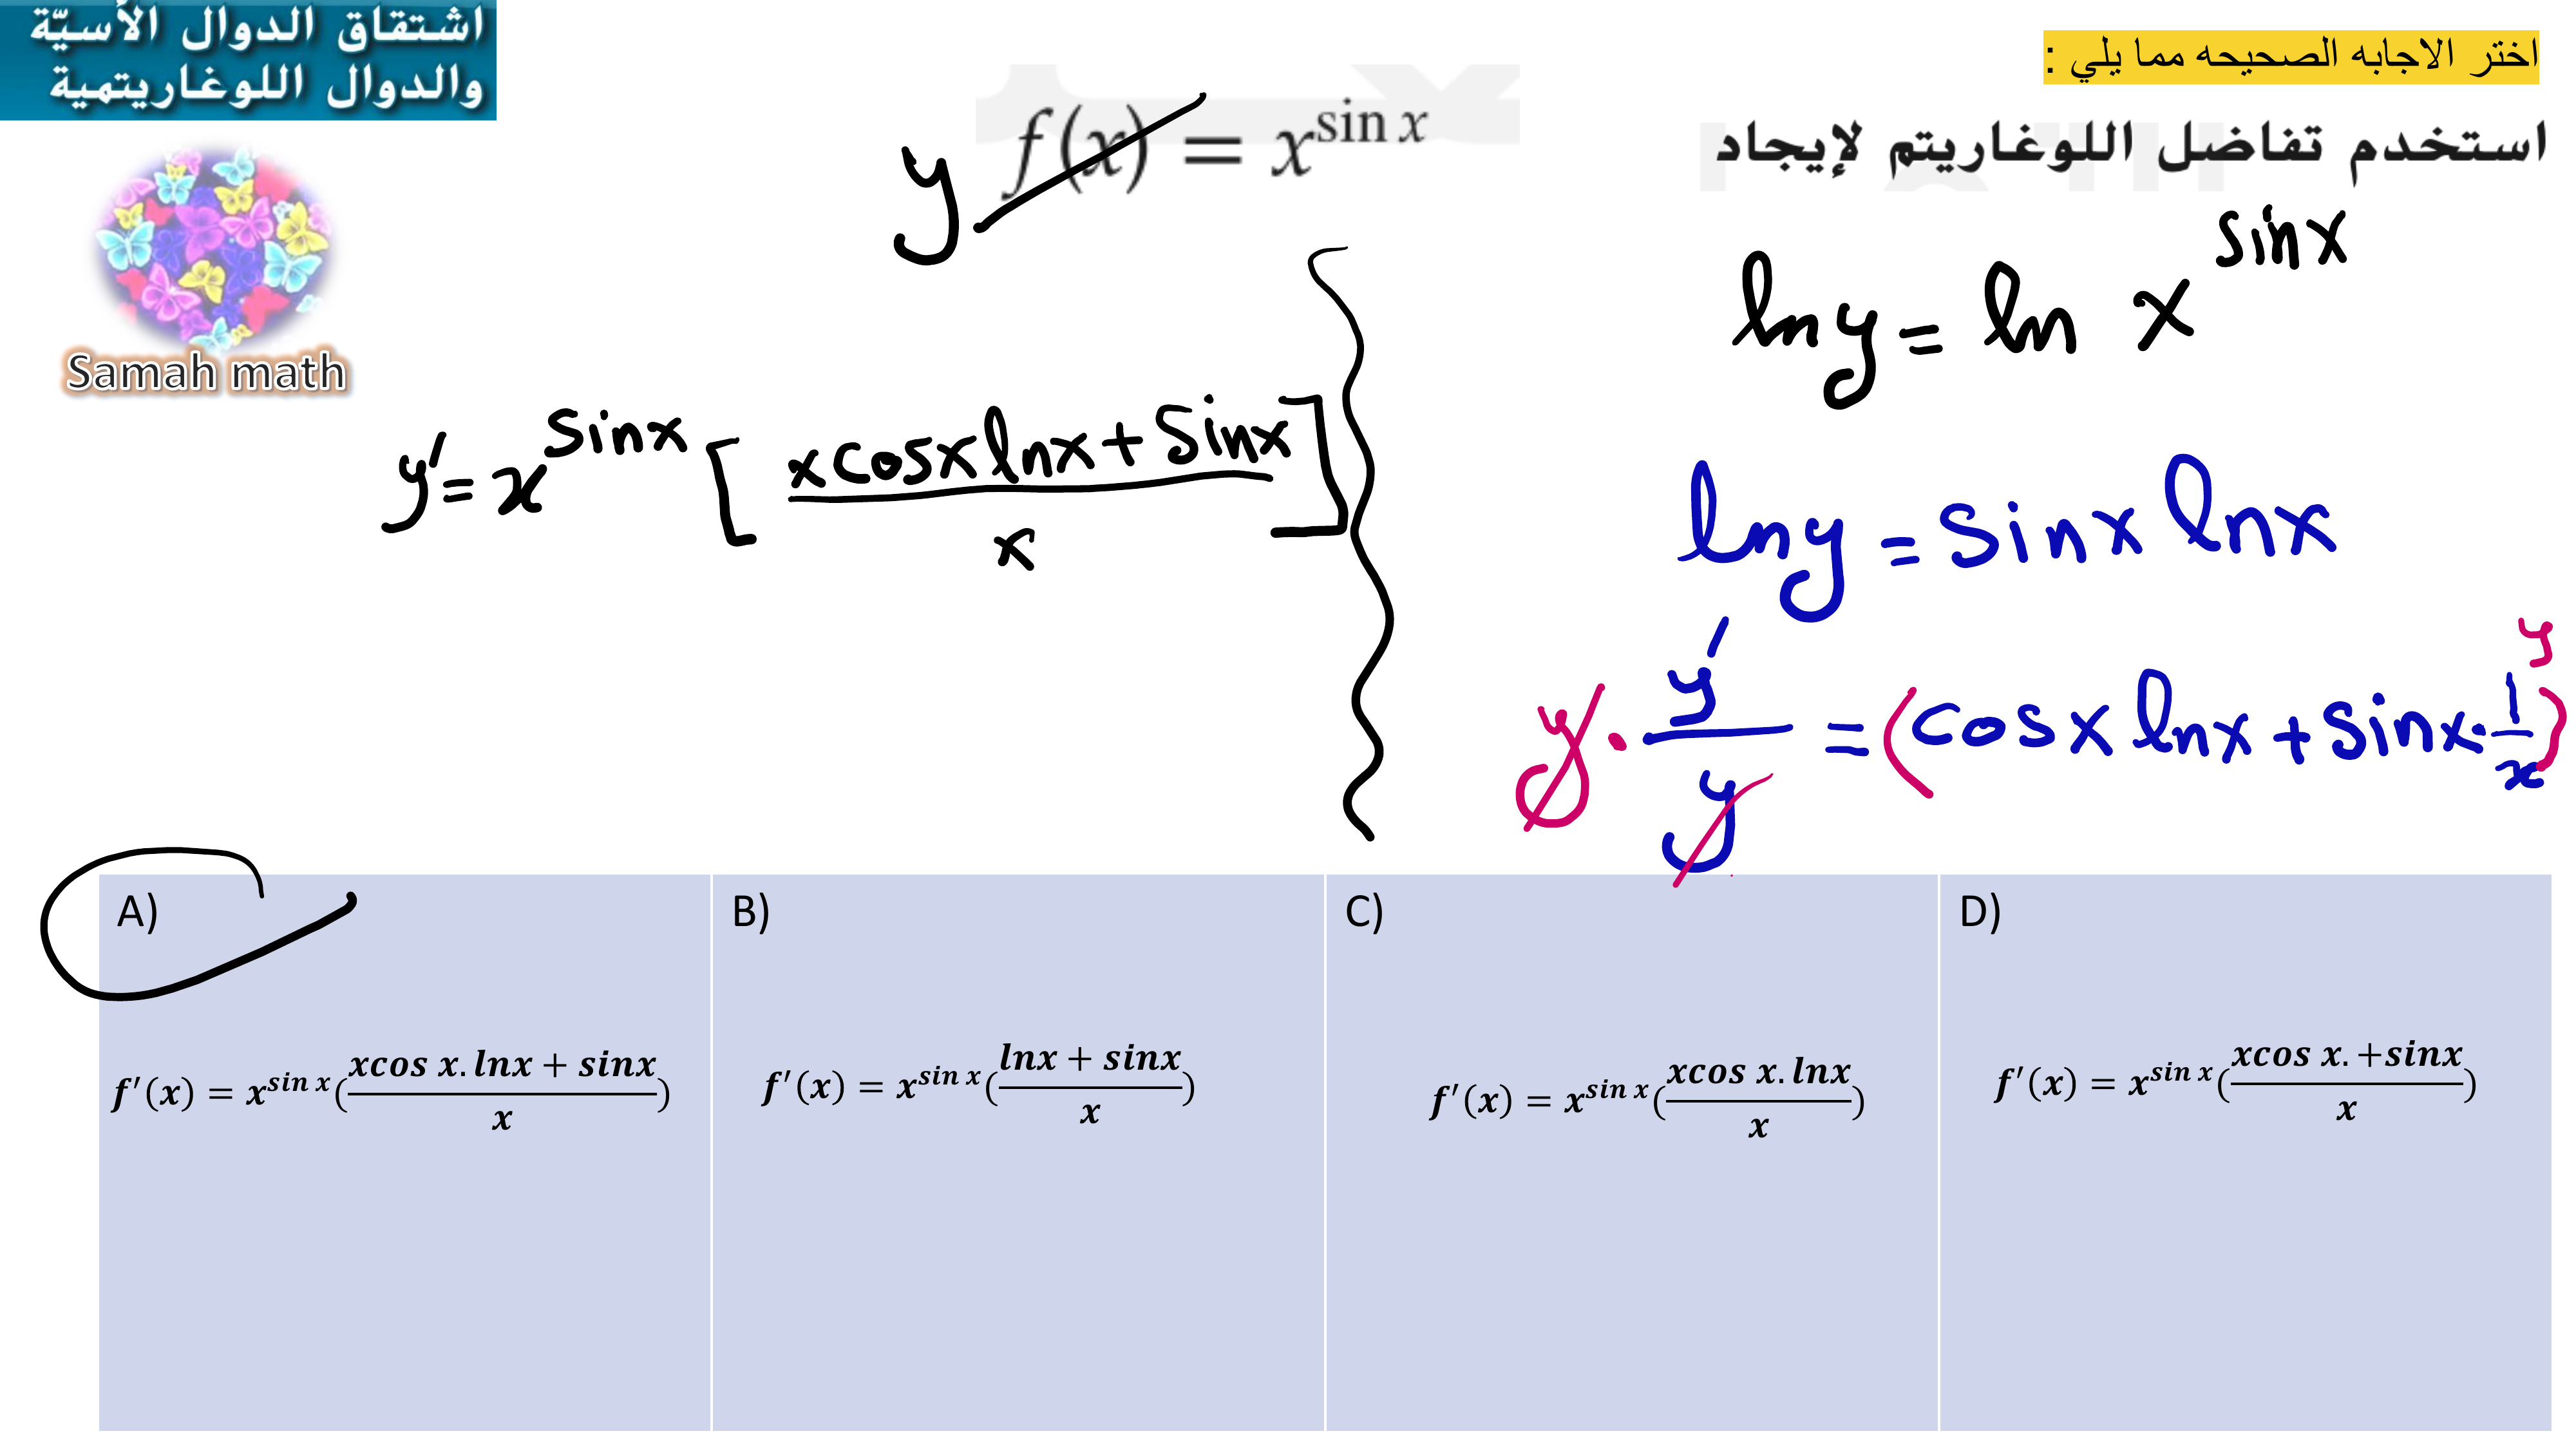 اشتقاق الدوال الأسيّة
والدوال اللوغاريتمية
اختر الاجابه الصحيحه مما يلي :
استخدم تفاضل اللوغاريتم لإيجاد
y f(x) = x^{sin x}
Samah math
ln y = ln x^{sin x}
ln y = sin x ln x
y · y'/y = (cos x ln x + sin x · 1/x) y
y' = x^{sin x} [ (x cos x ln x + sin x)/x ]
A)
f'(x) = x^{sin x}((xcos x. lnx + sinx)/x)
B)
f'(x) = x^{sin x}((lnx + sinx)/x)
C)
f'(x) = x^{sin x}((xcos x. lnx)/x)
D)
f'(x) = x^{sin x}((xcos x. +sinx)/x)